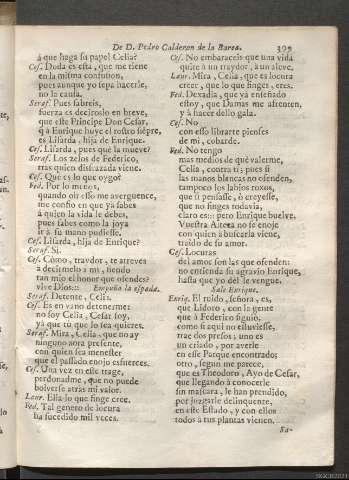 De D. Pedro Calderon de la Barca. 309
à que haga su papel Celia?
Ces. Duda es esta, que me tiene
en la misma confusion,
pues aunque yo sepa hacerle,
no la causa.
Seraf. Pues sabreis,
fuerza es decirosio en breve,
que este Principe Don Cesar,
q̃ à Enrique huye el rostro siẽpre,
es Lisarda, hija de Enrique.
Ces. Lisarda, pues què la mueve?
Seraf. Los zelos de Federico,
tras quien disfrazada viene.
Ces. Què es lo que oygo?
Fed. Por lo menos,
quando oìr esso me averguence,
me confio en que yà sabes
à quien la vida le debes,
pues sabes como la joya
ir à su mano pudiesse.
Ces. Lisarda, hija de Enrique?
Seraf. Si.
Ces. Còmo, traydor, te atreves
à decirmelo à mi, siendo
tan mio el honor que ofendes?
vive Dios::: Empuña la espada.
Seraf. Detente, Celia.
Ces. Es en vano detenerme:
no soy Celia, Cesar soy,
yà que tù que lo sea quieres.
Seraf. Mira, Celia, que no ay
ninguno aora presente,
con quien sea menester
que el passado enojo esfuerces.
Ces. Una vez en este trage,
perdonadme, que no puede
bolverse atràs mi valor.
Laur. Ella lo que finge cree.
Fed. Tal genero de locura
ha sucedido mil veces.
Ces. No embaraceis que una vida
quite à un traydor, à un aleve.
Laur. Mira, Celia, que es locura
creer, que lo que finges, eres.
Fed. Dexadla, que yà enseñado
estoy, que Damas me afrenten,
y à hacer dello gala.
Ces. No
con esso librarte pienses
de mi, cobarde.
Fed. No tengo
mas medios de què valerme,
Celia, contra ti; pues si
las manos blancas no ofenden,
tampoco los labios roxos,
que si pensasse, ò creyesse,
que no finges todavia,
claro es::: pero Enrique buelve.
Vuestra Alteza no se enoje
con quien à buscarla viene,
traìdo de su amor.
Ces. Locuras
del amor son las que ofenden:
no entienda su agravio Enrique,
hasta que yo del le vengue.
Sale Enrique.
Enriq. El ruido, señora, es,
que Lidoro, con la gente
que à Federico siguiò,
como si aqui no estuviesse,
trae dos presos, uno es
un criado, por averle
en este Parque encontrado;
otro, segun me parece,
que es Theodoro, Ayo de Cesar,
que llegando à conocerle
sin mascara, le han prendido,
por juzgarle delinquente,
en este Estado, y con ellos
todos à tus plantas vienen.
Sa-